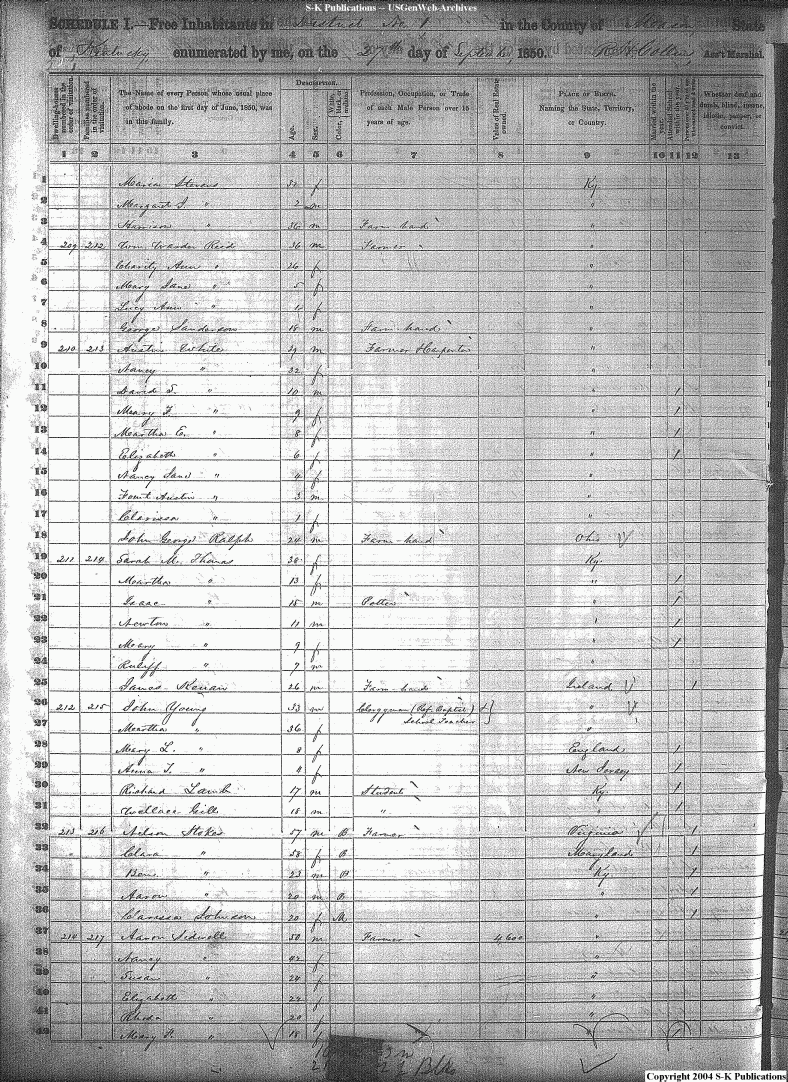 S-K Publications – USGenWeb-Archives
SCHEDULE I.—Free Inhabitants in District No. 1 in the County of State
of Kentucky enumerated by me, on the 27th day of 1850. Ass't Marshal.
Dwelling-houses numbered in the order of visitation.
Families numbered in the order of visitation.
The Name of every Person whose usual place of abode on the first day of June, 1850, was in this family.
Description.
Age.
Sex.
Color, White, black, or mulatto.
Profession, Occupation, or Trade of each Male Person over 15 years of age.
Value of Real Estate owned.
Place of Birth. Naming the State, Territory, or Country.
Married within the year.
Whether deaf and dumb, blind, insane, idiotic, pauper, or convict.
1 2 3 4 5 6 7 8 9 10 11 12 13
1 Stevens f Ky.
2 Margaret S. " 2 "
3 Harrison " 36 m Farm hand "
4 209 212 Wm Warden Reid 36 m Farmer "
5 Charity Ann " 26 f "
6 Mary Jane " 5 f "
7 Lucy Ann " 1 f "
8 George Sanderson 18 m Farm hand "
9 210 213 Austin White 39 m Farmer & Carpenter "
10 Nancy " 32 f "
11 David S. " 10 m " 1
12 Mary F. " 9 f " 1
13 Martha E. " 8 f " 1
14 Elizabeth " 6 f " 1
15 Nancy Jane " 4 f "
16 Austin " 3 m "
17 Clarissa " 1 f "
18 John George Ralph 24 m Farm hand Ohio
19 211 214 Sarah M. Thomas 38 f Ky.
20 Martha " 13 f " 1
21 Isaac " 18 m Potter " 1
22 Newton " 11 m " 1
23 Mary " 9 f " 1
24 " 7 m "
25 James 26 m Farm hand Ireland 1
26 212 215 John Young 33 m Clergyman (Ref. Baptist) &
27 Martha " 36 f School Teacher "
28 Mary L. " 8 f England 1
29 Anna T. " 4 f New Jersey 1
30 Richard Lamb 17 m Student Ky. 1
31 Wallace 18 m " " 1
32 213 216 Nelson Stokes 57 m B Farmer Virginia 1
33 Clara " 58 f B Maryland 1
34 Ben. " 23 m B Ky 1
35 Aaron " 20 m B " 1
36 Clarissa Johnson 20 f M " 1
37 214 217 Aaron Sidwell 50 m Farmer 4,600 "
38 Nancy " 42 f "
39 Susan " 24 f "
40 Elizabeth " 22 f "
41 Rhoda " 20 f "
42 Mary " 18 f "
Blks
Copyright 2004 S-K Publications